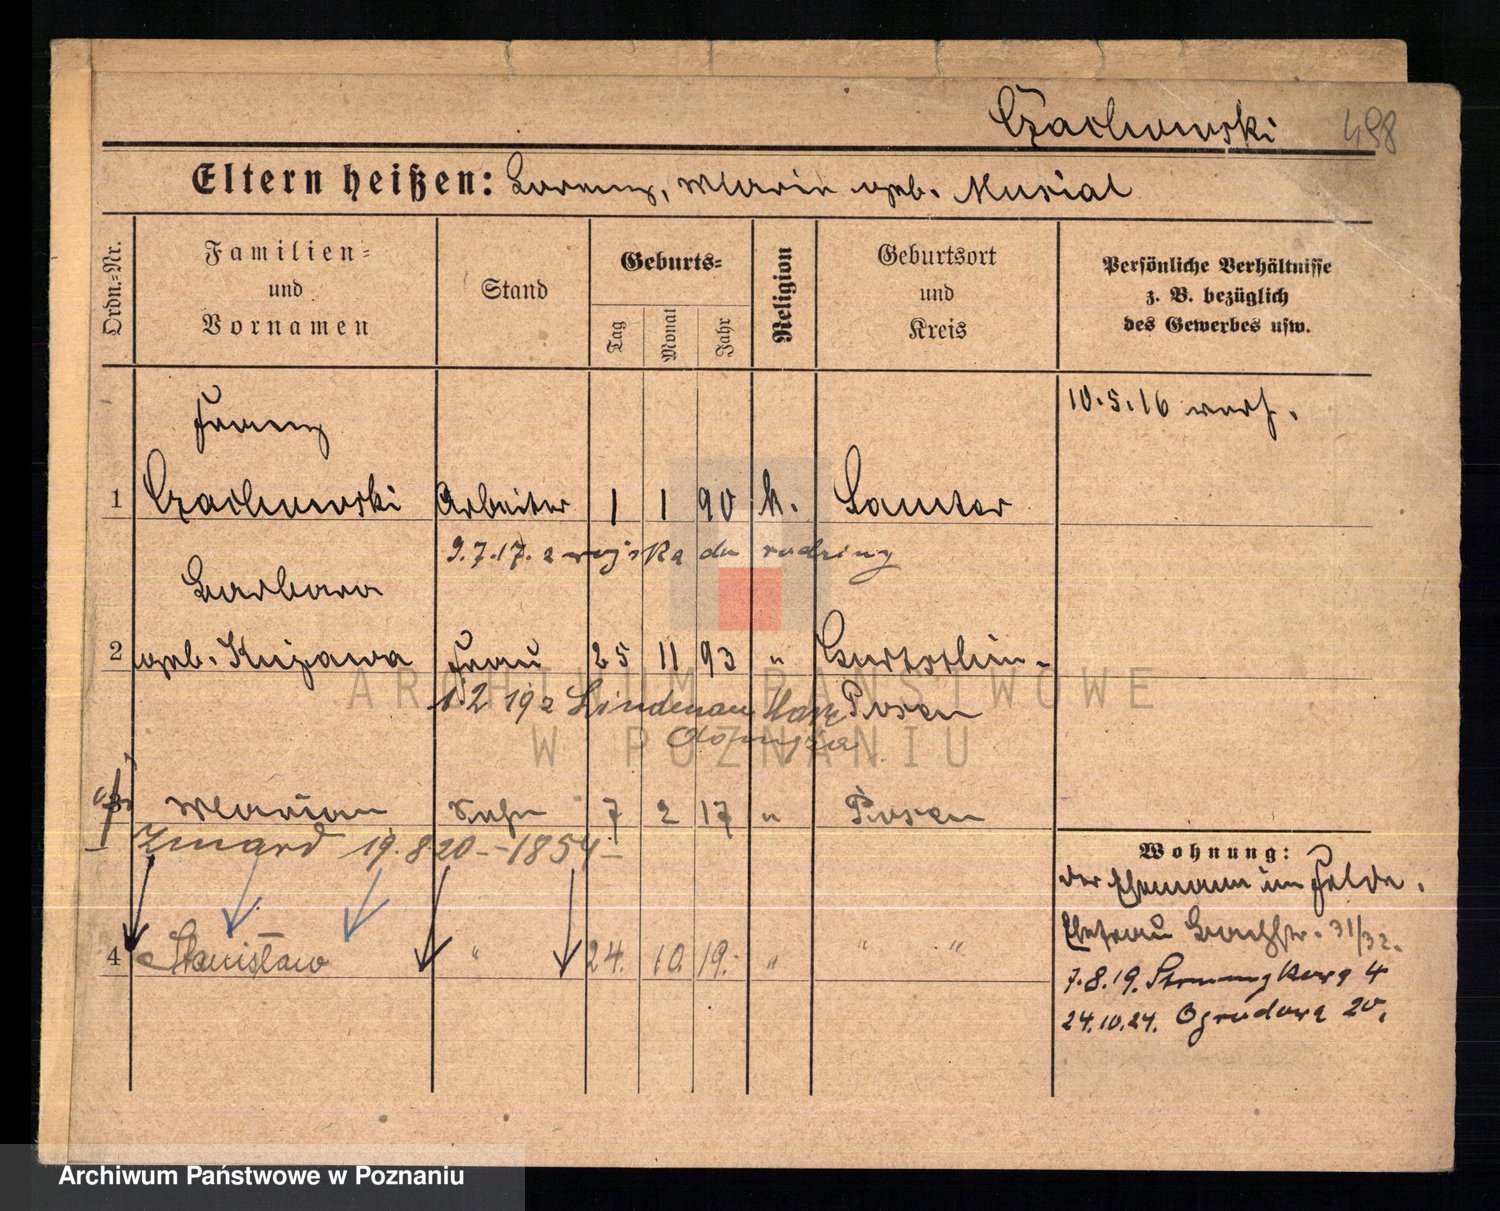 Czachowski 498
Eltern heißen: Lorenz, Maria geb. Musial
Ordn.-Nr.
Familien-
und
Vornamen
Stand
Geburts-
Tag
Monat
Jahr
Religion
Geburtsort
und
Kreis
Persönliche Verhältnisse
z. B. bezüglich
des Gewerbes usw.
10.5.16 verh.
Franz
1 Czachowski Arbeiter 1 1 90 k. Samter
9.7.17. z wojska do rodziny
Barbara
2 geb. Kujawa Frau 25 11 93 " Gurtschin-
1.2 19 z Lindenau Posen
3 Marian Sohn 7 2 17 " Posen
Zmarł 19.8 20 - 1854 -
4 Stanisław " 24. 10. 19. " " "
Wohnung:
der Ehemann im Felde.
Ehefrau Bachstr. 31/32.
7.8.19. 4
24.10.24. Ogrodowa 20,
ARCHIWUM PAŃSTWOWE
W POZNANIU
Archiwum Państwowe w Poznaniu